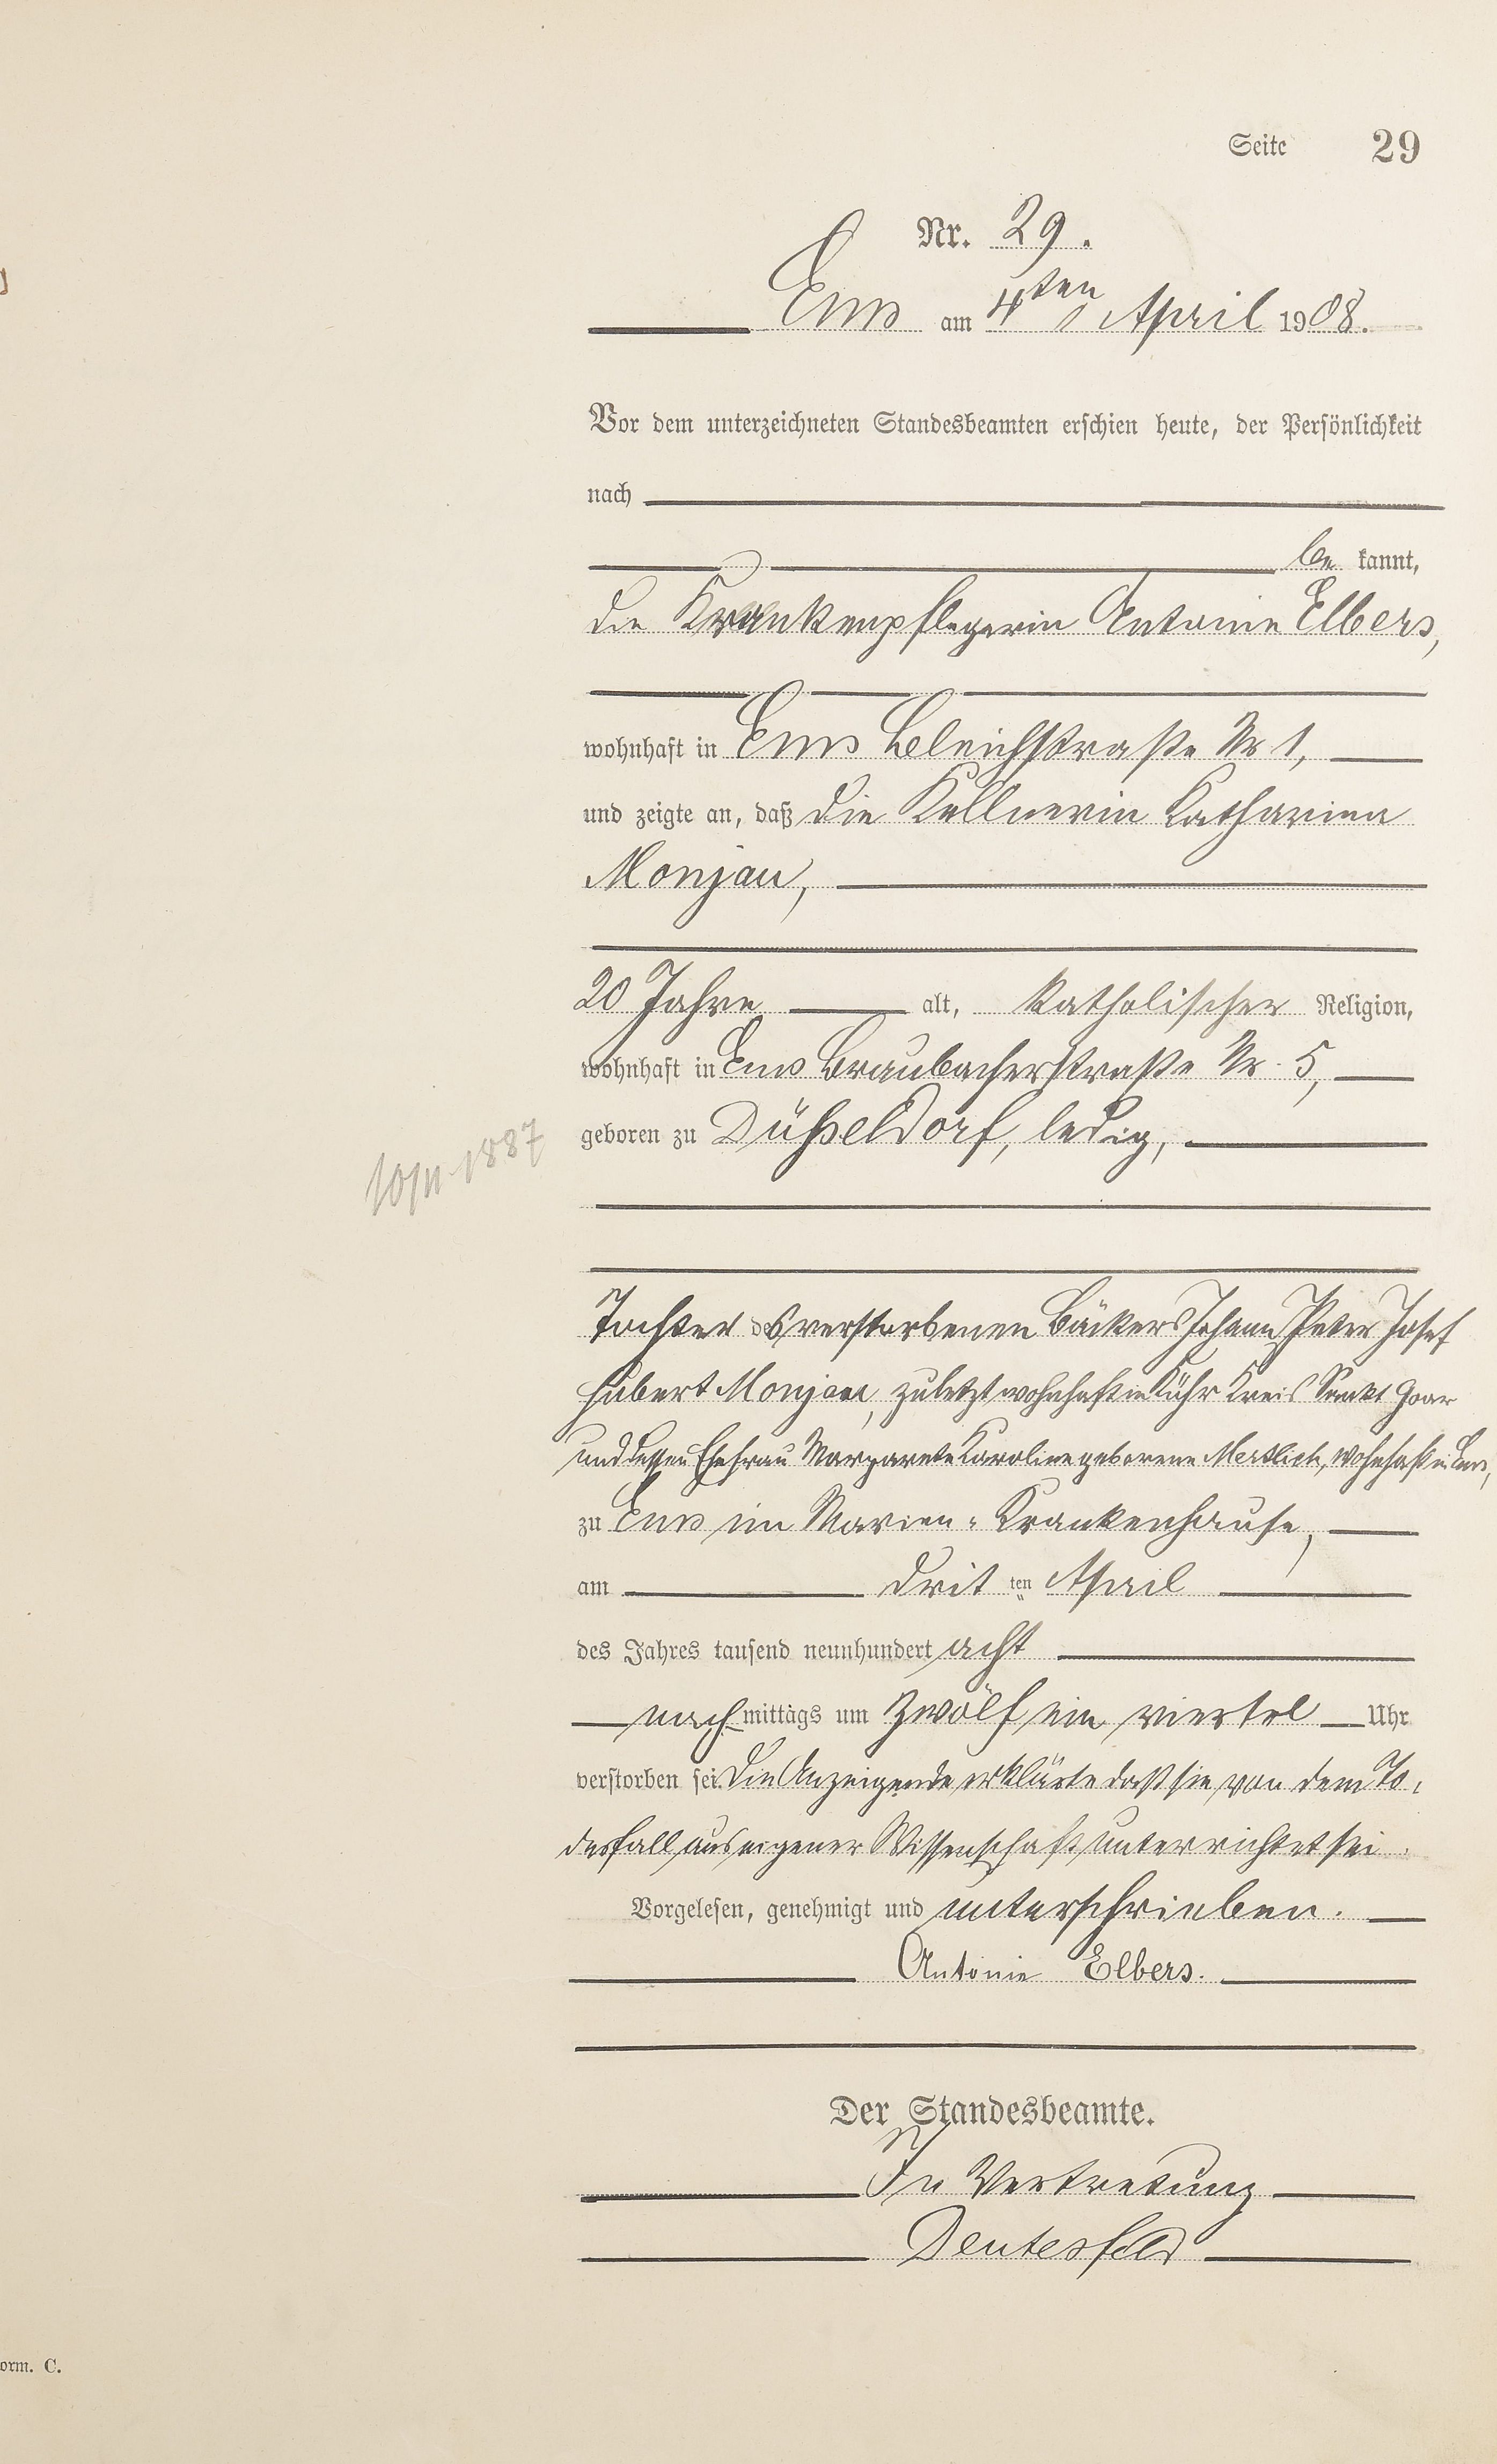 Seite 29
Nr. 29.
Ems am 4ten April 1908.
Vor dem unterzeichneten Standesbeamten erschien heute, der Persönlichkeit
nach
be kannt,
die Krankenpflegerin Antonie Elbers,
wohnhaft in Ems Bleichstraße Nr 1,
und zeigte an, daß die Kellnerin Katharina
Monjau,
20 Jahre alt, katholischer Religion,
wohnhaft in Ems Braubacherstraße Nr. 5,
geboren zu Düsseldorf, ledig,
10/11 1887
Tochter des verstorbenen Bäckers Johann Peter Josef
Hubert Monjau, zuletzt wohnhaft in Kühr Kreis Sankt Goar
und dessen Ehefrau Margarete Karoline geborene Mertlich, wohnhaft in Ems,
zu Ems im Marien-Krankenhause,
am dritten April
des Jahres tausend neunhundert acht
nachmittags um zwölf ein viertel Uhr
verstorben sei. Die Anzeigende erklärte daß sie von dem To-
desfall aus eigener Wissenschaft unterrichtet sei.
Vorgelesen, genehmigt und unterschrieben.
Antonie Elbers.
Der Standesbeamte.
In Vertretung
Deutesfeld
orm. C.